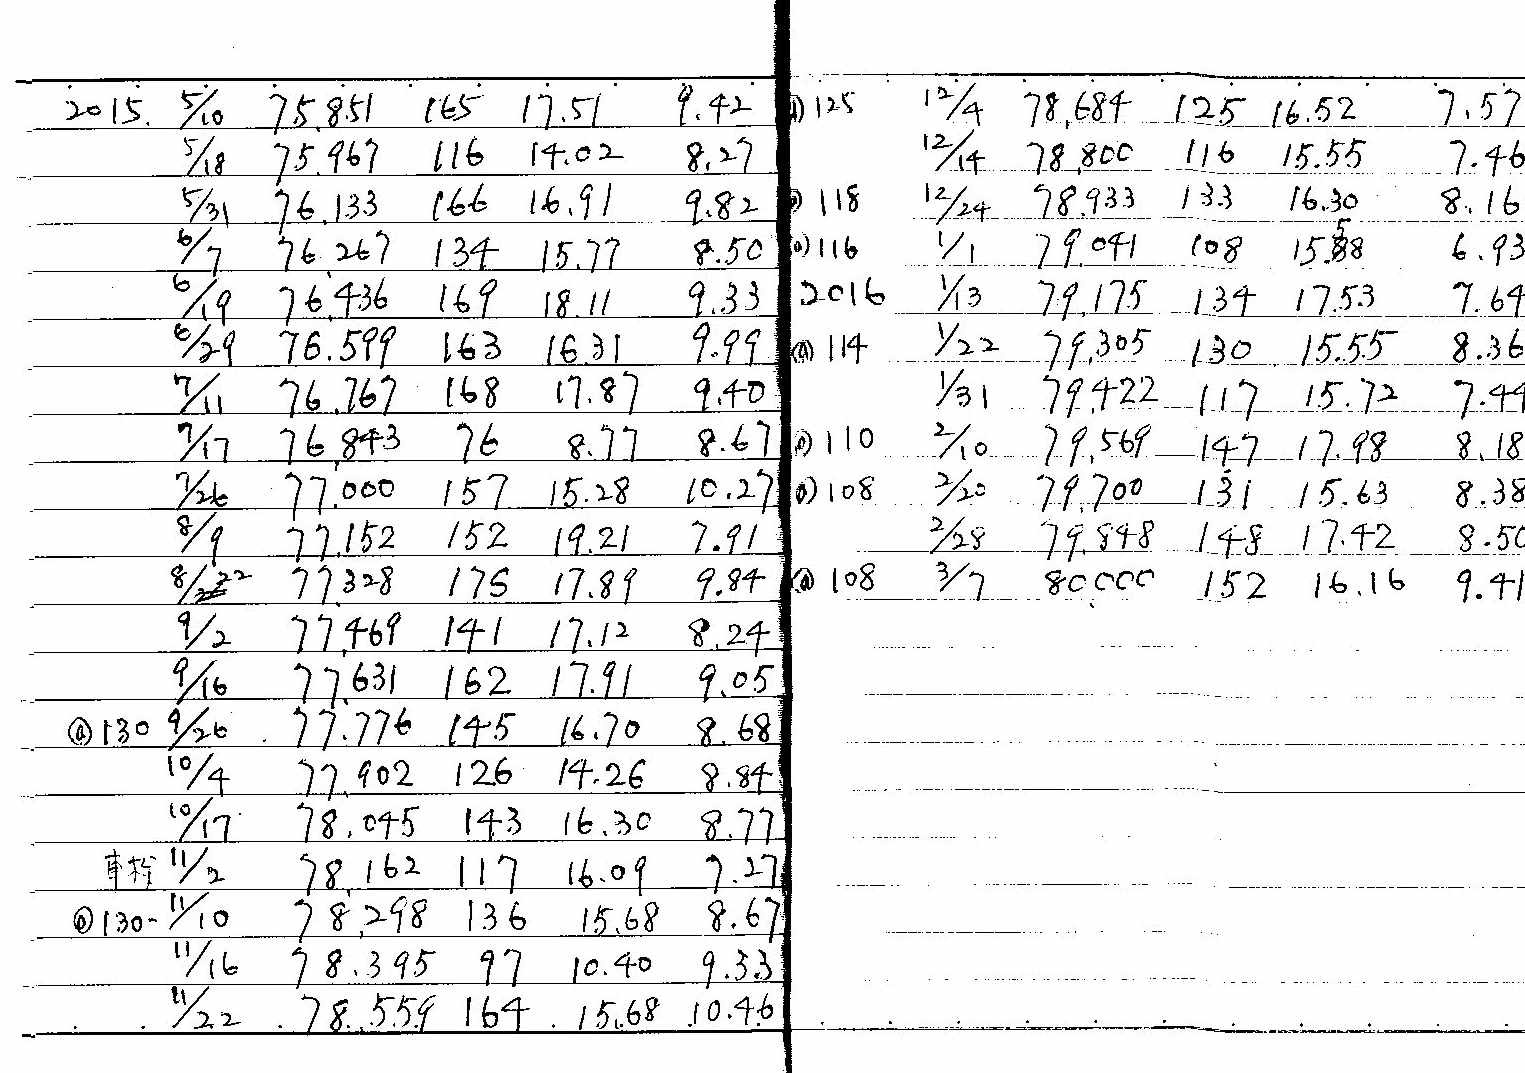 2015. 5/10 75.851 165 17.51 9.42
5/18 75.967 116 14.02 8.27
5/31 76.133 166 16.91 9.82
6/7 76.267 134 15.77 8.50
6/19 76.436 169 18.11 9.33
6/29 76.599 163 16.31 9.99
7/11 76.767 168 17.87 9.40
7/17 76.843 76 8.77 8.67
7/26 77.000 157 15.28 10.27
8/9 77.152 152 19.21 7.91
8/22 77.328 176 17.89 9.84
9/2 77.469 141 17.12 8.24
9/16 77.631 162 17.91 9.05
@130 9/26 77.776 145 16.70 8.68
10/4 77.902 126 14.26 8.84
10/17 78.045 143 16.30 8.77
車検 11/2 78.162 117 16.09 7.27
@130- 11/10 78,298 136 15.68 8.67
11/16 78.395 97 10.40 9.33
11/22 78.559 164 15.68 10.46
@125 12/4 78,684 125 16.52 7.57
12/14 78,800 116 15.55 7.46
@118 12/24 78.933 133 16.30 8.16
@116 1/1 79.041 108 15.58 6.93
2016 1/13 79,175 134 17.53 7.64
@114 1/22 79,305 130 15.55 8.36
1/31 79,422 117 15.72 7.44
@110 2/10 79,569 147 17.98 8.18
@108 2/20 79,700 131 15.63 8.38
2/28 79.848 148 17.42 8.50
@108 3/7 80,000 152 16.16 9.41